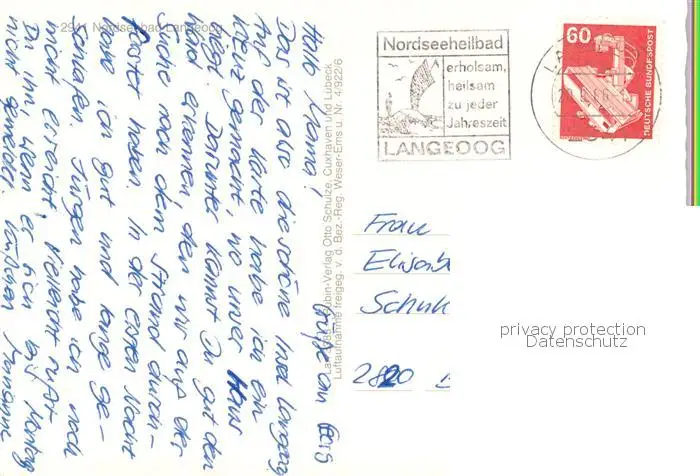 2941 Nordseebad Langeoog
Hallo Mama!
Das ist also die schöne Insel Langeoog
Auf der Karte habe ich ein
Kreuz gemacht, wo unser Haus
liegt. Darunter kannst Du gut den
und erkennen den wir auf der
Suche nach dem Strand durch-
haben. In der ersten Nacht
habe ich gut und lange ge-
schlafen. Jürgen habe ich noch
nicht erreicht, vielleicht rufst
Du ihn, wenn er sich bis Montag
nicht gemeldet
Grüße an
Rubin-Verlag Otto Schulze, Cuxhaven und Lübeck
Luftaufnahme freigeg. v. d. Bez.-Reg. Weser-Ems u. Nr. 4/922/6
Nordseeheilbad
erholsam,
heilsam
zu jeder
Jahreszeit
LANGEOOG
60
DEUTSCHE BUNDESPOST
Frau
Elisab
Schuh
2820
privacy protection
Datenschutz